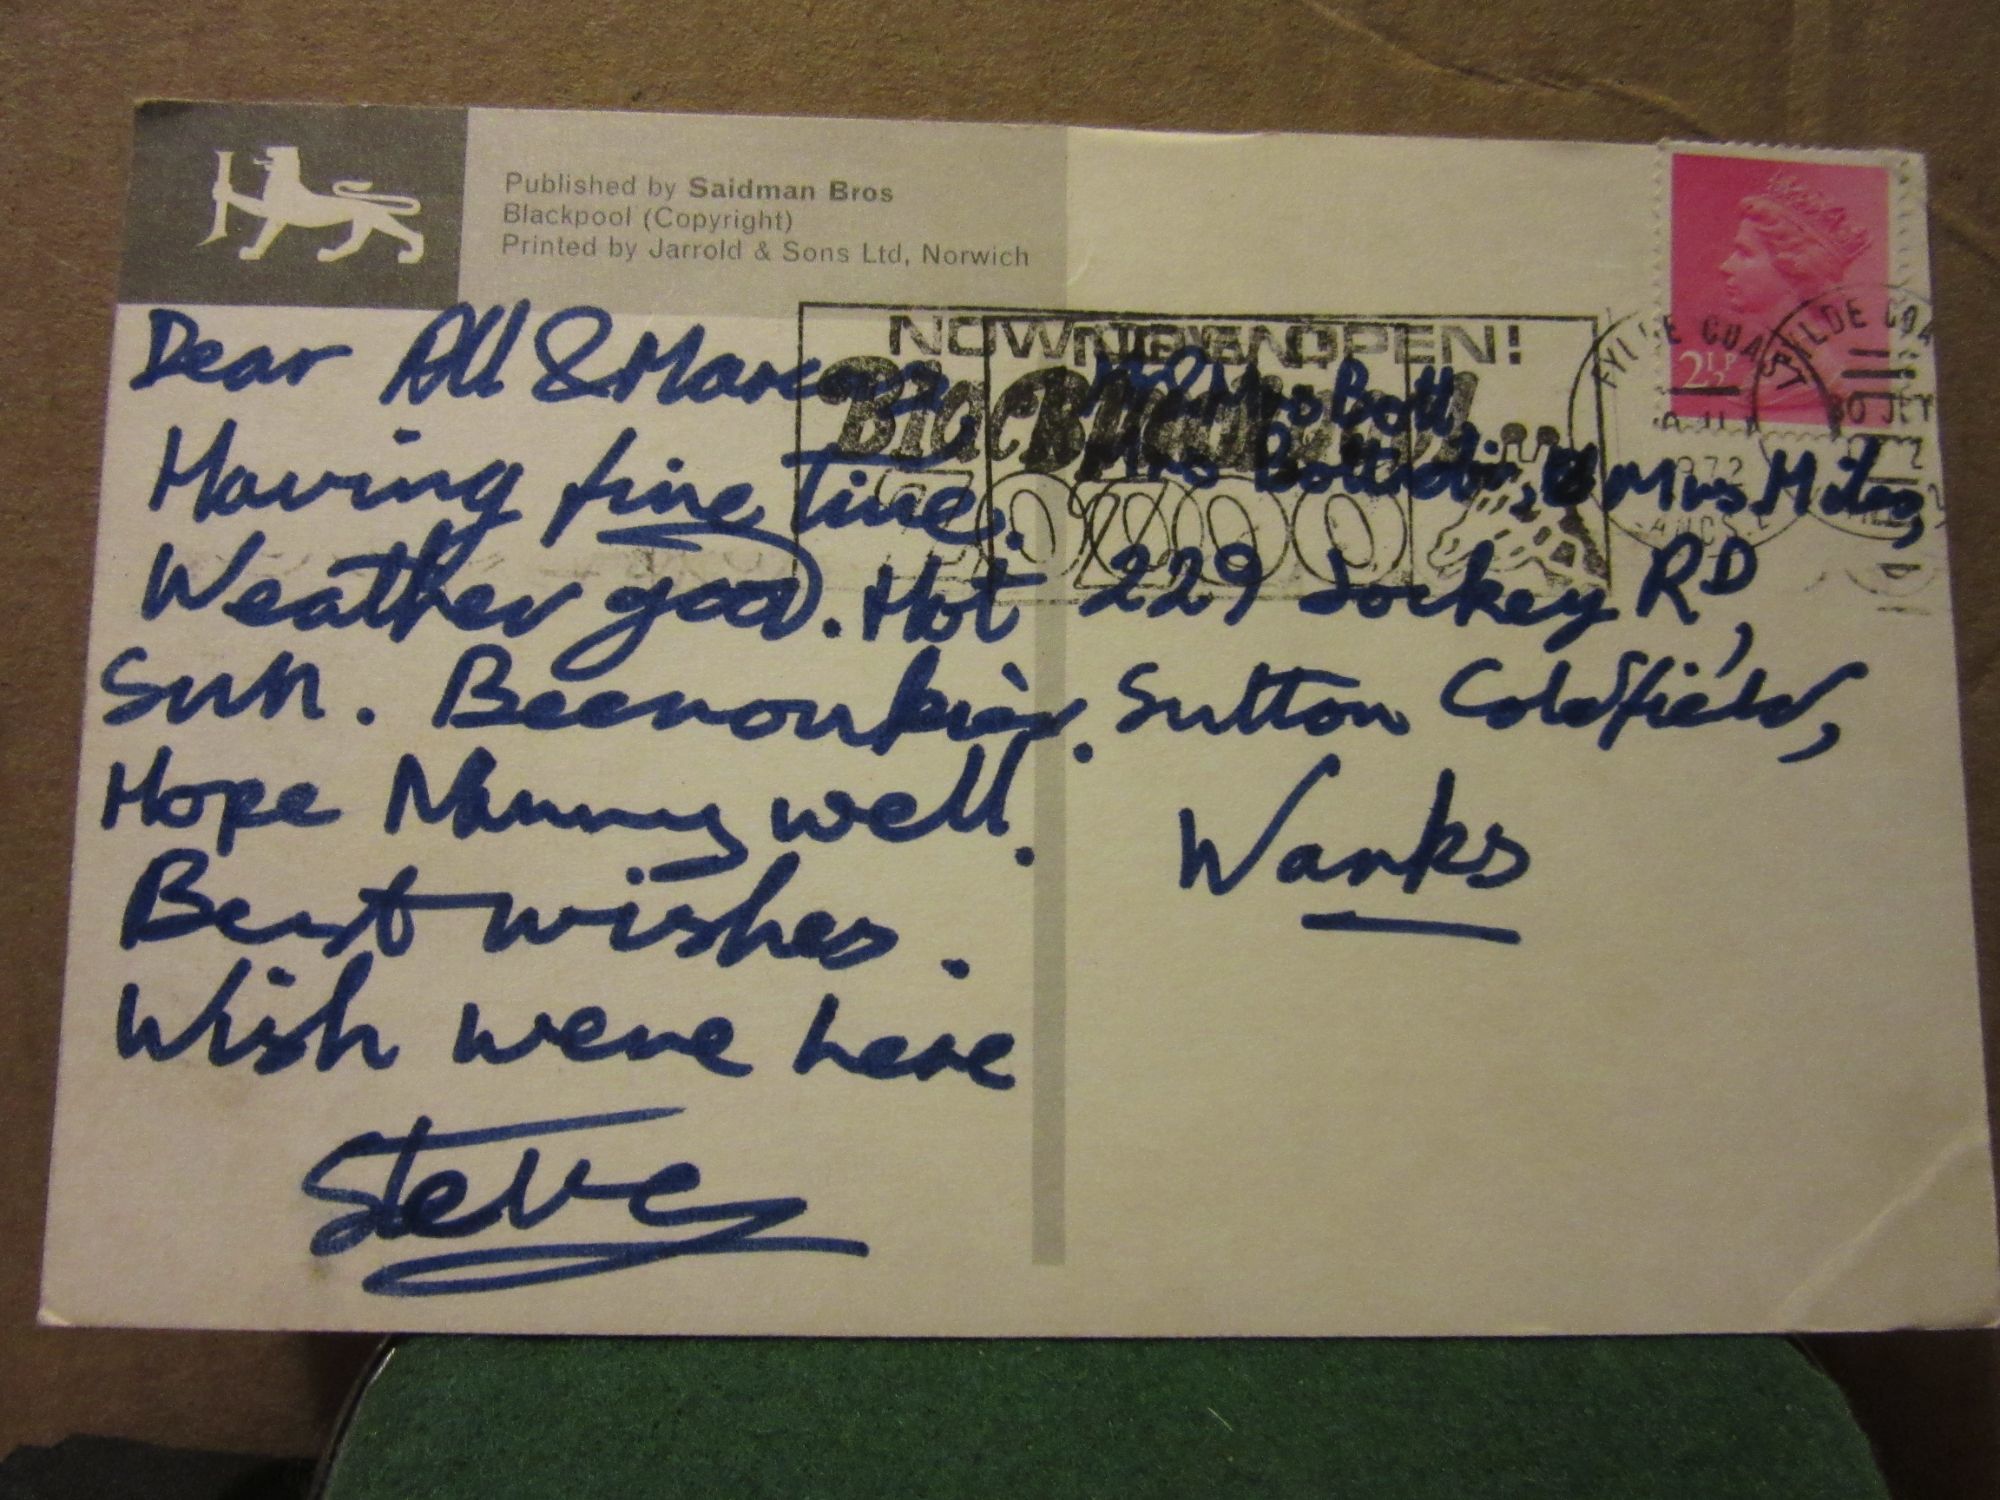 Published by Saidman Bros
Blackpool (Copyright)
Printed by Jarrold & Sons Ltd, Norwich
NOW OPEN!
2½P
FYLDE COAST
1972
Dear All &
Having fine time.
Weather good. Hot
Sun.
Hope Nanny well.
Best wishes.
Wish were here
Steve
Mr & Mrs Bott
Mrs & Mrs Miles,
229 Jockey RD,
Sutton Coldfield,
Warks